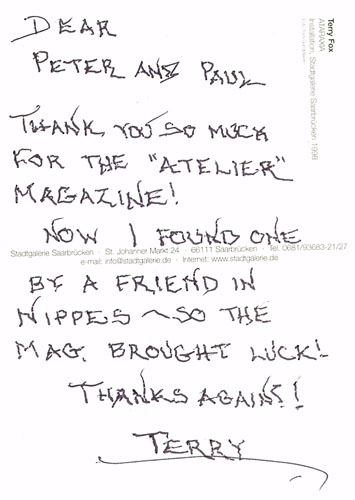 DEAR
PETER AND PAUL
THANK YOU SO MUCH
FOR THE "ATELIER"
MAGAZINE!
NOW I FOUND ONE
BY A FRIEND IN
NIPPES ~ SO THE
MAG. BROUGHT LUCK!
THANKS AGAIN!!
TERRY
Terry Fox
ATARAXIA
Installation, Stadtgalerie Saarbrücken 1998
Stadtgalerie Saarbrücken · St. Johanner Markt 24 · 66111 Saarbrücken · Tel. 0681/93683-21/27
e-mail: info@stadtgalerie.de · Internet: www.stadtgalerie.de